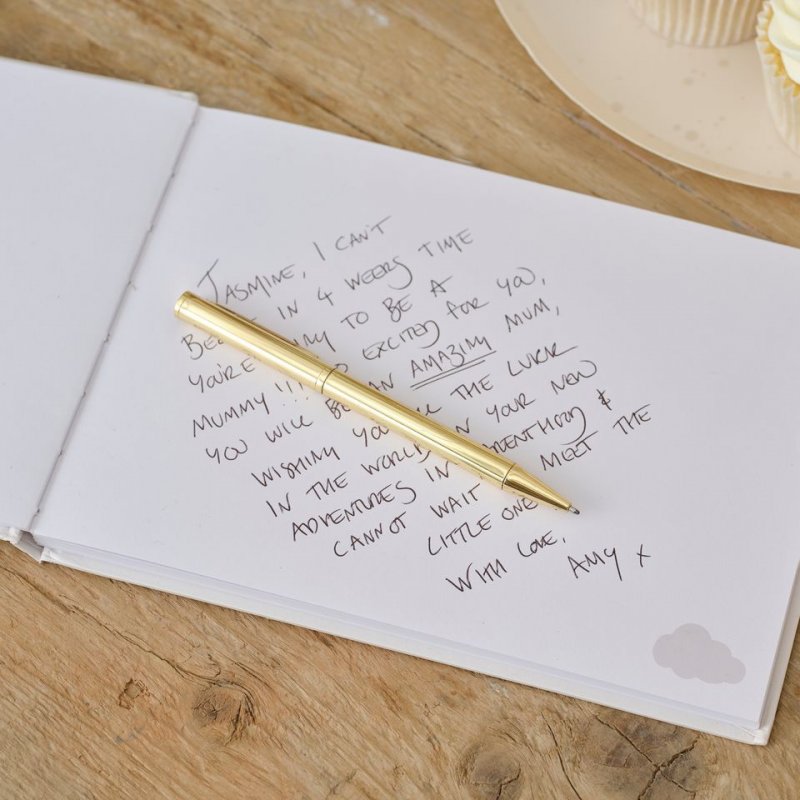 JASMINE, I CAN'T
IN 4 WEEKS TIME
YOU'RE TO BE A
MUMMY!!! EXCITED FOR YOU,
YOU WILL BE AN AMAZING MUM,
WISHING YOU THE LUCK
IN THE WORLD YOUR NEW
ADVENTURES IN PARENTHOOD &
CANNOT WAIT MEET THE
LITTLE ONE
WITH LOVE,
AMY X